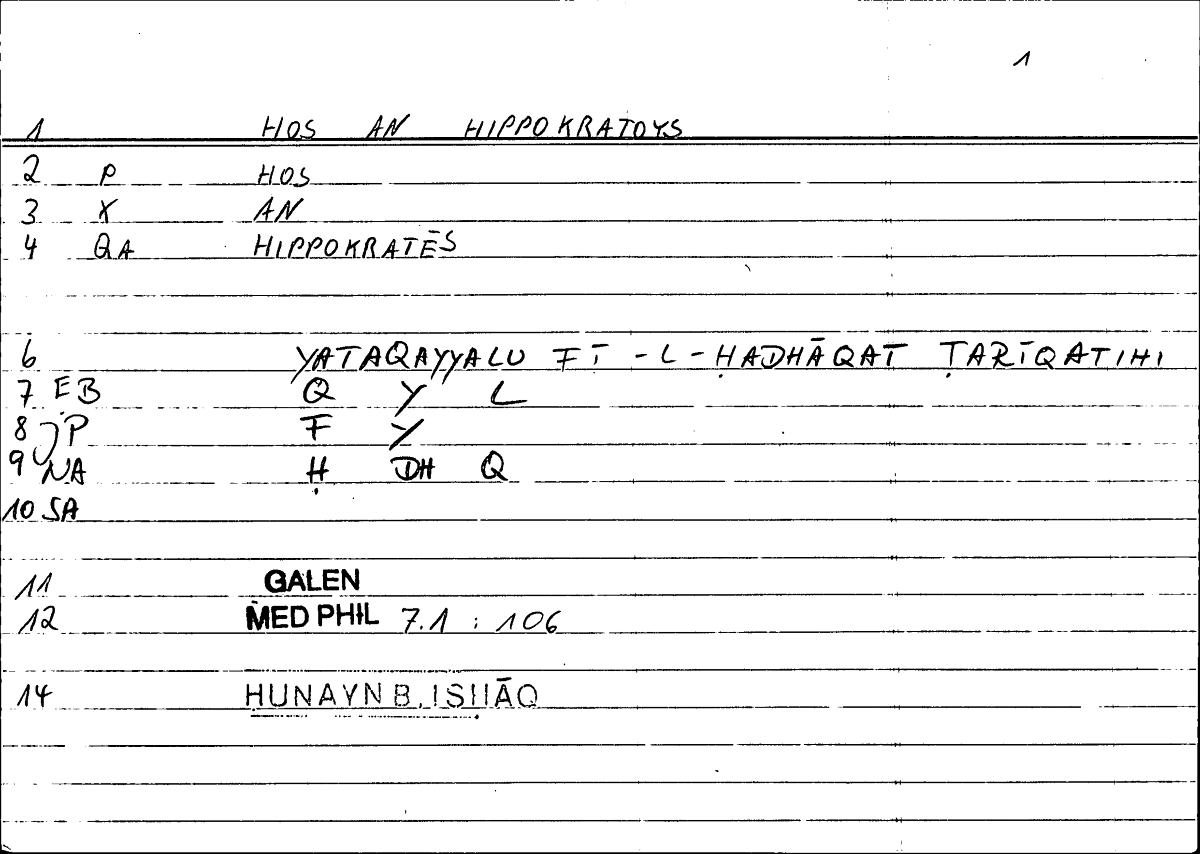 1
1 HOS AN HIPPOKRATOYS
2 P HOS
3 X AN
4 QA HIPPOKRATĒS
6 YATAQAYYALU FĪ -L-ḤADHĀQAT ṬARĪQATIHI
7 EB Q Y L
8 JP F Y
9 NA Ḥ DH Q
10 SA
11 GALEN
12 MED PHIL 7.1 : 106
14 ḤUNAYN B. ISḤĀQ